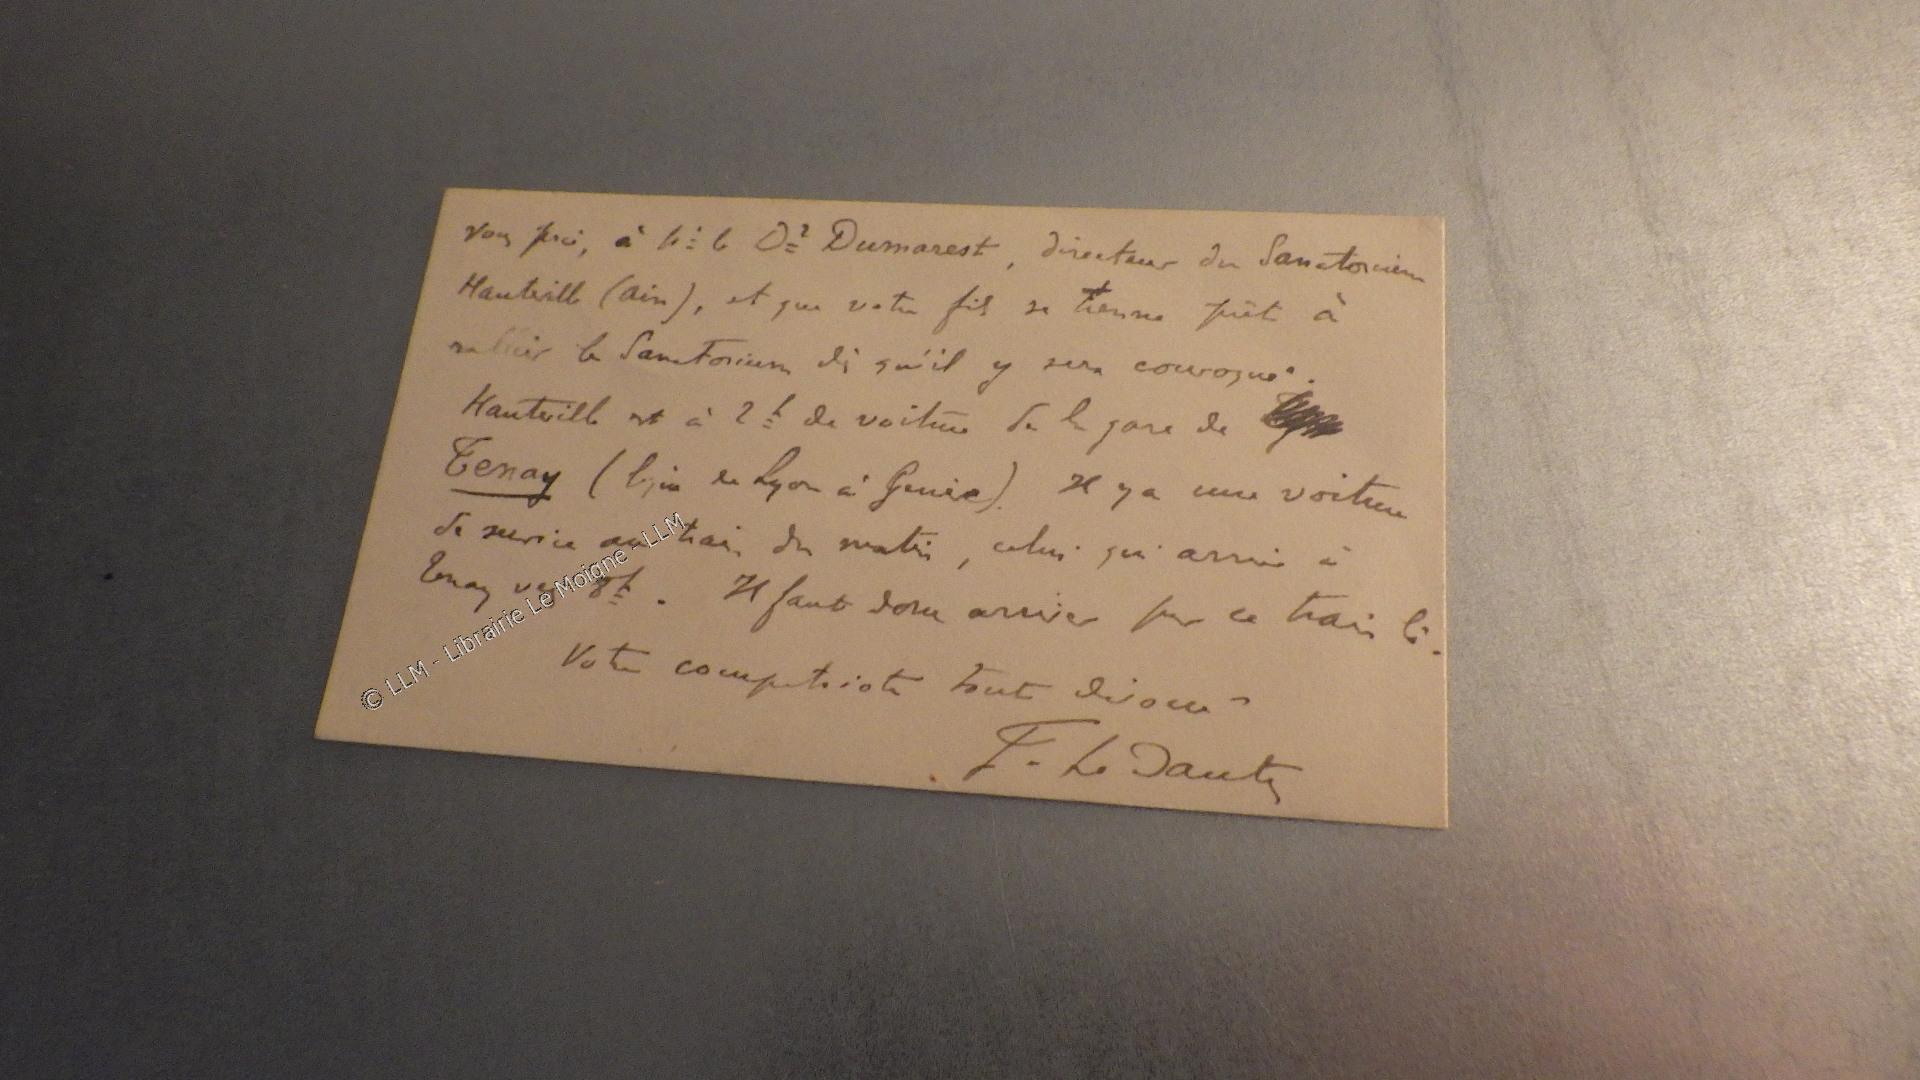 vous prie, à M. le Dr Dumarest, directeur du Sanatorium
Hauteville (Ain), et que votre fils se tienne prêt à
rallier le Sanatorium dès qu'il y sera convoqué.
Hauteville est à 2 h de voiture de la gare de
Tenay (ligne de Lyon à Genève). Il y a une voiture
de service au train du matin, celui qui arrive à
Tenay vers 8h. Il faut donc arriver par ce train là.
Votre compatriote tout dévoué
F. Le Dantec
© LLM - Librairie Le Moigne - LLM